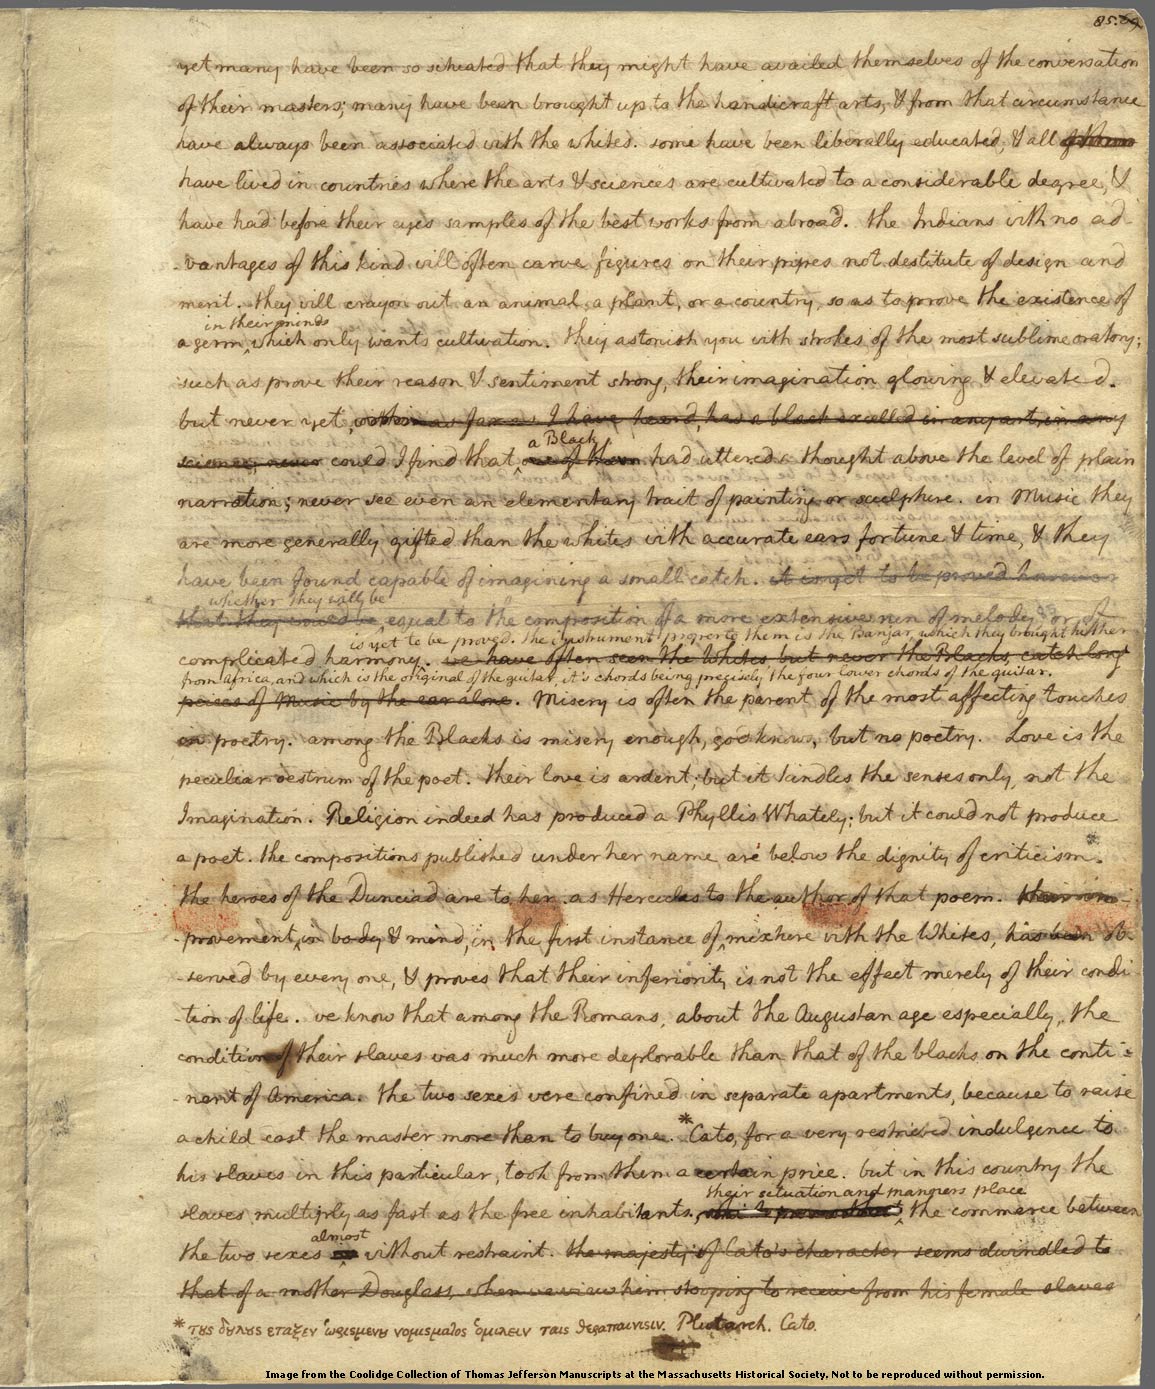 85.69
yet many have been so situated that they might have availed themselves of the conversation
of their masters; many have been brought up to the handicraft arts, & from that circumstance
have always been associated with the whites. some have been liberally educated, & all of them
have lived in countries where the arts & sciences are cultivated to a considerable degree, &
have had before their eyes samples of the best works from abroad. the Indians with no ad-
-vantages of this kind will often carve figures on their pipes not destitute of design and
merit. they will crayon out an animal, a plant, or a country, so as to prove the existence of
in their minds
a germ which only wants cultivation. they astonish you with strokes of the most sublime oratory;
such as prove their reason & sentiment strong, their imagination glowing & elevated.
but never yet, as far as I have heard, has a black excelled in any art, in any
a Black
science, never could I find that one of them had uttered a thought above the level of plain
narration; never see even an elementary trait of painting or sculpture. in Music they
are more generally gifted than the whites with accurate ears for tune & time, & they
have been found capable of imagining a small catch. it is yet to be proved however
whether they will be
that they could be equal to the composition of a more extensive run of melody, or of
is yet to be proved. the instrument proper to them is the Banjar, which they brought hither
complicated harmony. we have often seen the Whites, but never the Blacks, catch long
from africa, and which is the original of the guitar, it's chords being precisely the four lower chords of the guitar.
peices of Music by the ear alone. Misery is often the parent of the most affecting touches
in poetry. among the Blacks is misery enough, god knows, but no poetry. Love is the
peculiar oestrum of the poet. their love is ardent; but it kindles the senses only, not the
Imagination. Religion indeed has produced a Phyllis Whately; but it could not produce
a poet. the compositions published under her name are below the dignity of criticism.
the heroes of the Dunciad are to her as Hercules to the author of that poem. their im-
-provement, in body & mind, in the first instance of mixture with the Whites, has been ob-
-served by every one, & proves that their inferiority is not the effect merely of their condi-
-tion of life. we know that among the Romans, about the Augustan age especially, the
condition of their slaves was much more deplorable than that of the blacks on the conti-
-nent of America. the two sexes were confined in separate apartments, because to raise
a child cost the master more than to buy one. *Cato, for a very restricted indulgence to
his slaves in this particular, took from them a certain price. but in this country the
their situation and manners place
slaves multiply as fast as the free inhabitants. the commerce between
almost
the two sexes without restraint. the majesty of Cato's character seems dwindled to
that of a mother Douglass, when we view him stooping to receive from his female slaves
* τους δουλους εταξεν ὡρισμενου νομισματος ὁμιλειν ταις θεραπαινισιν. Plutarch. Cato.
Image from the Coolidge Collection of Thomas Jefferson Manuscripts at the Massachusetts Historical Society. Not to be reproduced without permission.